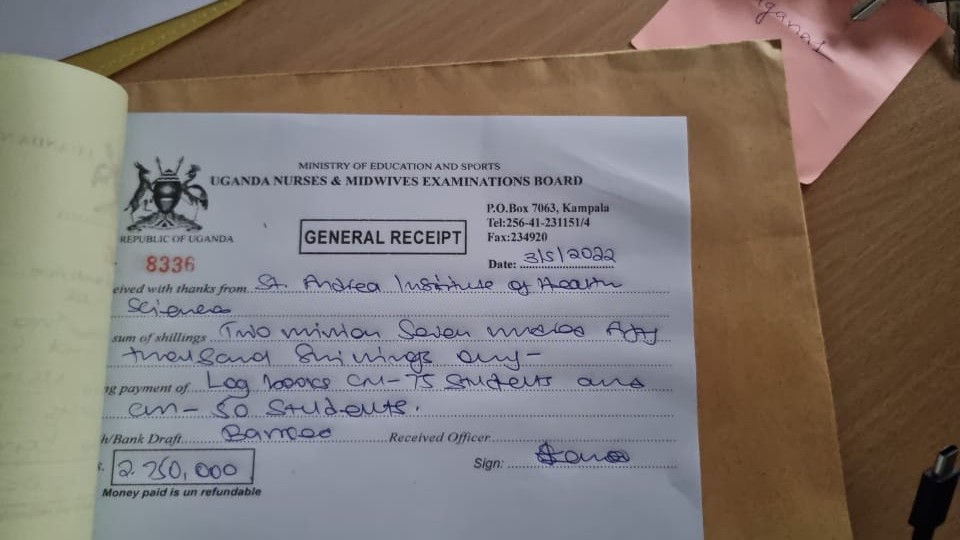 iganas
MINISTRY OF EDUCATION AND SPORTS
UGANDA NURSES & MIDWIVES EXAMINATIONS BOARD
P.O.Box 7063, Kampala
Tel:256-41-231151/4
Fax:234920
REPUBLIC OF UGANDA
GENERAL RECEIPT
8336
Date: 3/5/2022
eived with thanks from St. Andrea Institute of Health
Sciences
sum of shillings Two million Seven hundred fifty
thousand Shillings only-
ng payment of Log books CM-75 Students and
CN-50 Students.
h/Bank Draft Banked Received Officer
s. 2.750,000
Sign:
Money paid is un refundable